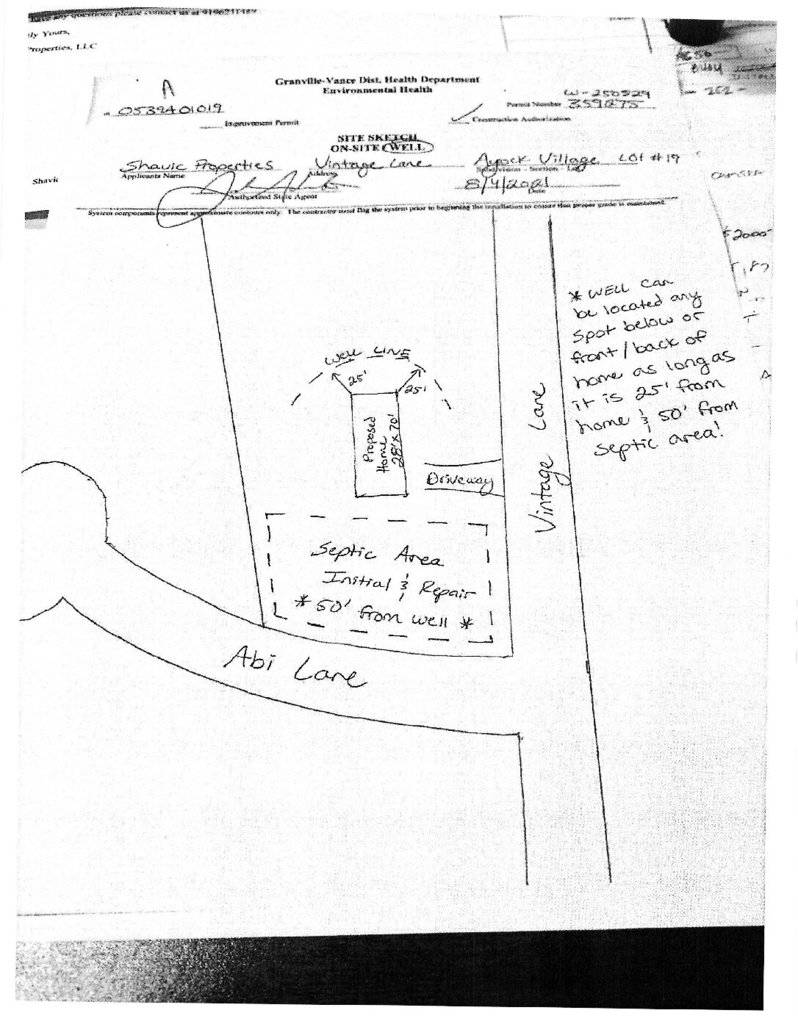 have any questions please contact us at 9196241489
ly Yours,
Properties, LLC
A
Granville-Vance Dist. Health Department
Environmental Health
0532401019
W-250929
Permit Number 359275
Improvement Permit
✓ Construction Authorization
SITE SKETCH
ON-SITE WELL
Shavic Properties
Vintage Lane
Aycock Village Lot #19
Applicants Name
Address
Subdivision - Section - Lot
8/4/2021
Authorized State Agent
Date
System components represent approximate contours only. The contractor must flag the system prior to beginning the installation to ensure that proper grade is maintained.
Shavic
- 252 -
$2000
* WELL can
be located any
spot below or
front/back of
home as long as
it is 25' from
home & 50' from
septic area!
Well Line
25'
25'
Proposed
Home
28' x 70'
Driveway
Vintage Lane
Septic Area
Initial & Repair
* 50' from well *
Abi Lane